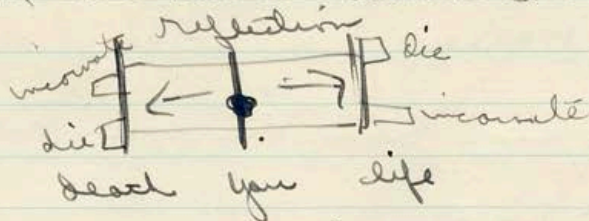 reflection
incarnate die
die incarnate
death you life